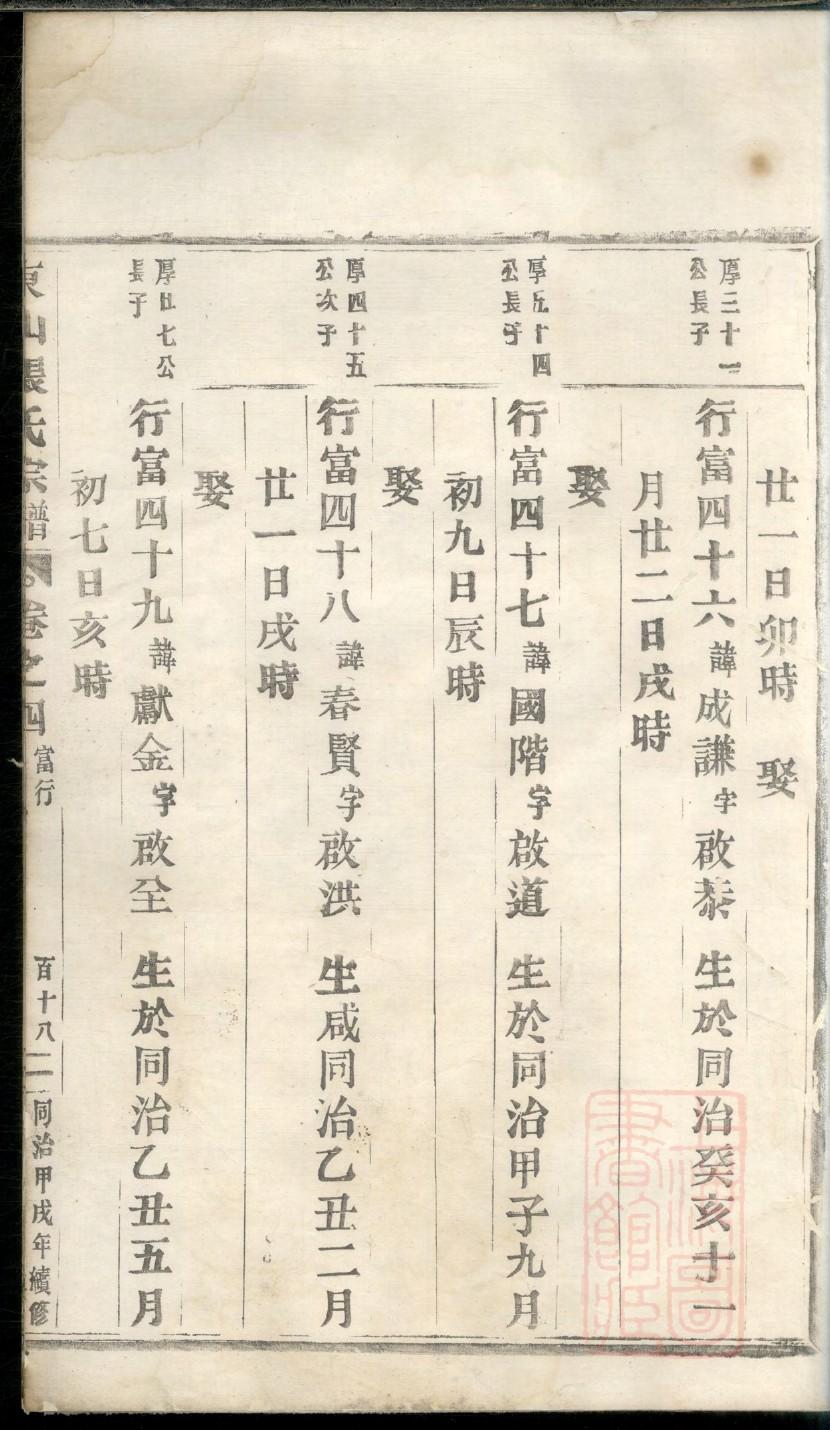 廿一日卯時 娶
厚三十一
公長子
行富四十六 諱 成謙 字 啟泰 生於同治癸亥十一
月廿二日戌時
娶
厚五十四
公長子
行富四十七 諱 國階 字 啟道 生於同治甲子九月
初九日辰時
娶
厚四十五
公次子
行富四十八 諱 春賢 字 啟洪 生咸同治乙丑二月
廿一日戌時
娶
厚廿七公
長子
行富四十九 諱 獻金 字 啟全 生於同治乙丑五月
初七日亥時
東山張氏宗譜 卷之四 富行 百十八 同治甲戌年續修